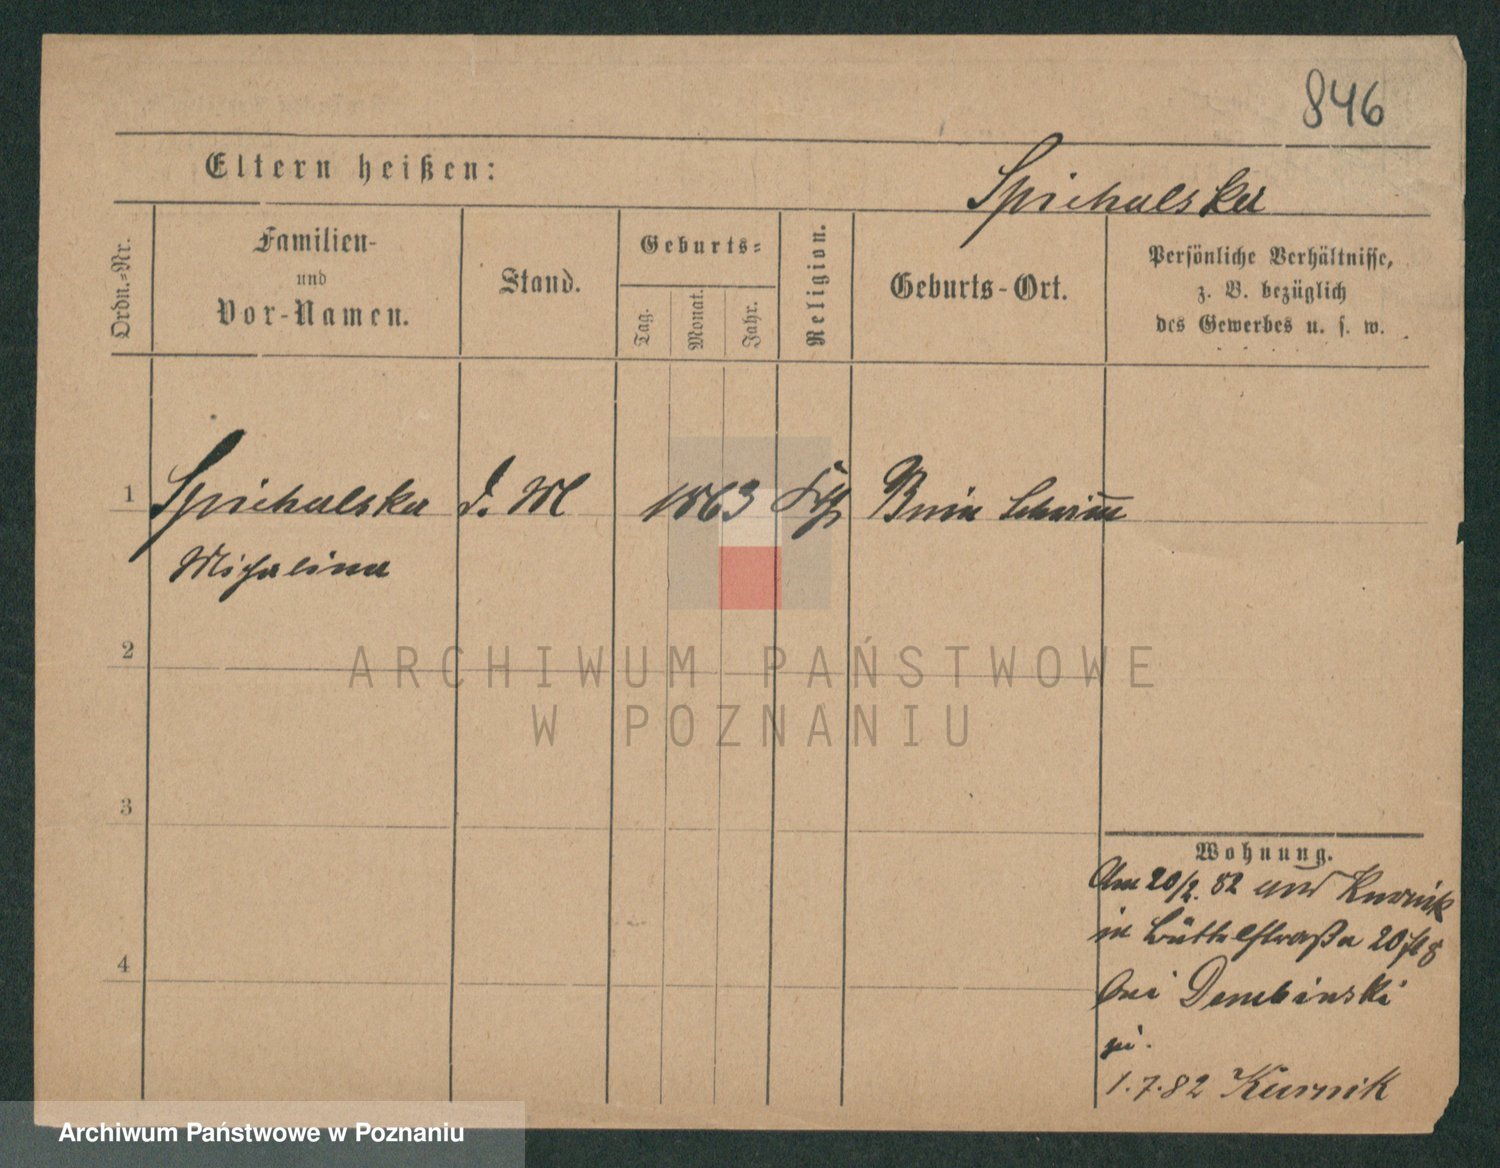 846
Eltern heißen:
Spichalska
Ordn.-Nr.
Familien-
und
Vor-Namen.
Stand.
Geburts-
Tag.
Monat.
Jahr.
Religion.
Geburts-Ort.
Persönliche Verhältnisse,
z. B. bezüglich
des Gewerbes u. s. w.
1 Spichalska d. M 1863 Kth Bnin Schrimm
Michalina
2
ARCHIWUM PAŃSTWOWE
W POZNANIU
3
Wohnung.
Am 20/2. 82 aus Kurnik
in Büttelstraße 20
4
bei Dembinski
zu.
1.7.82 Kurnik
Archiwum Państwowe w Poznaniu